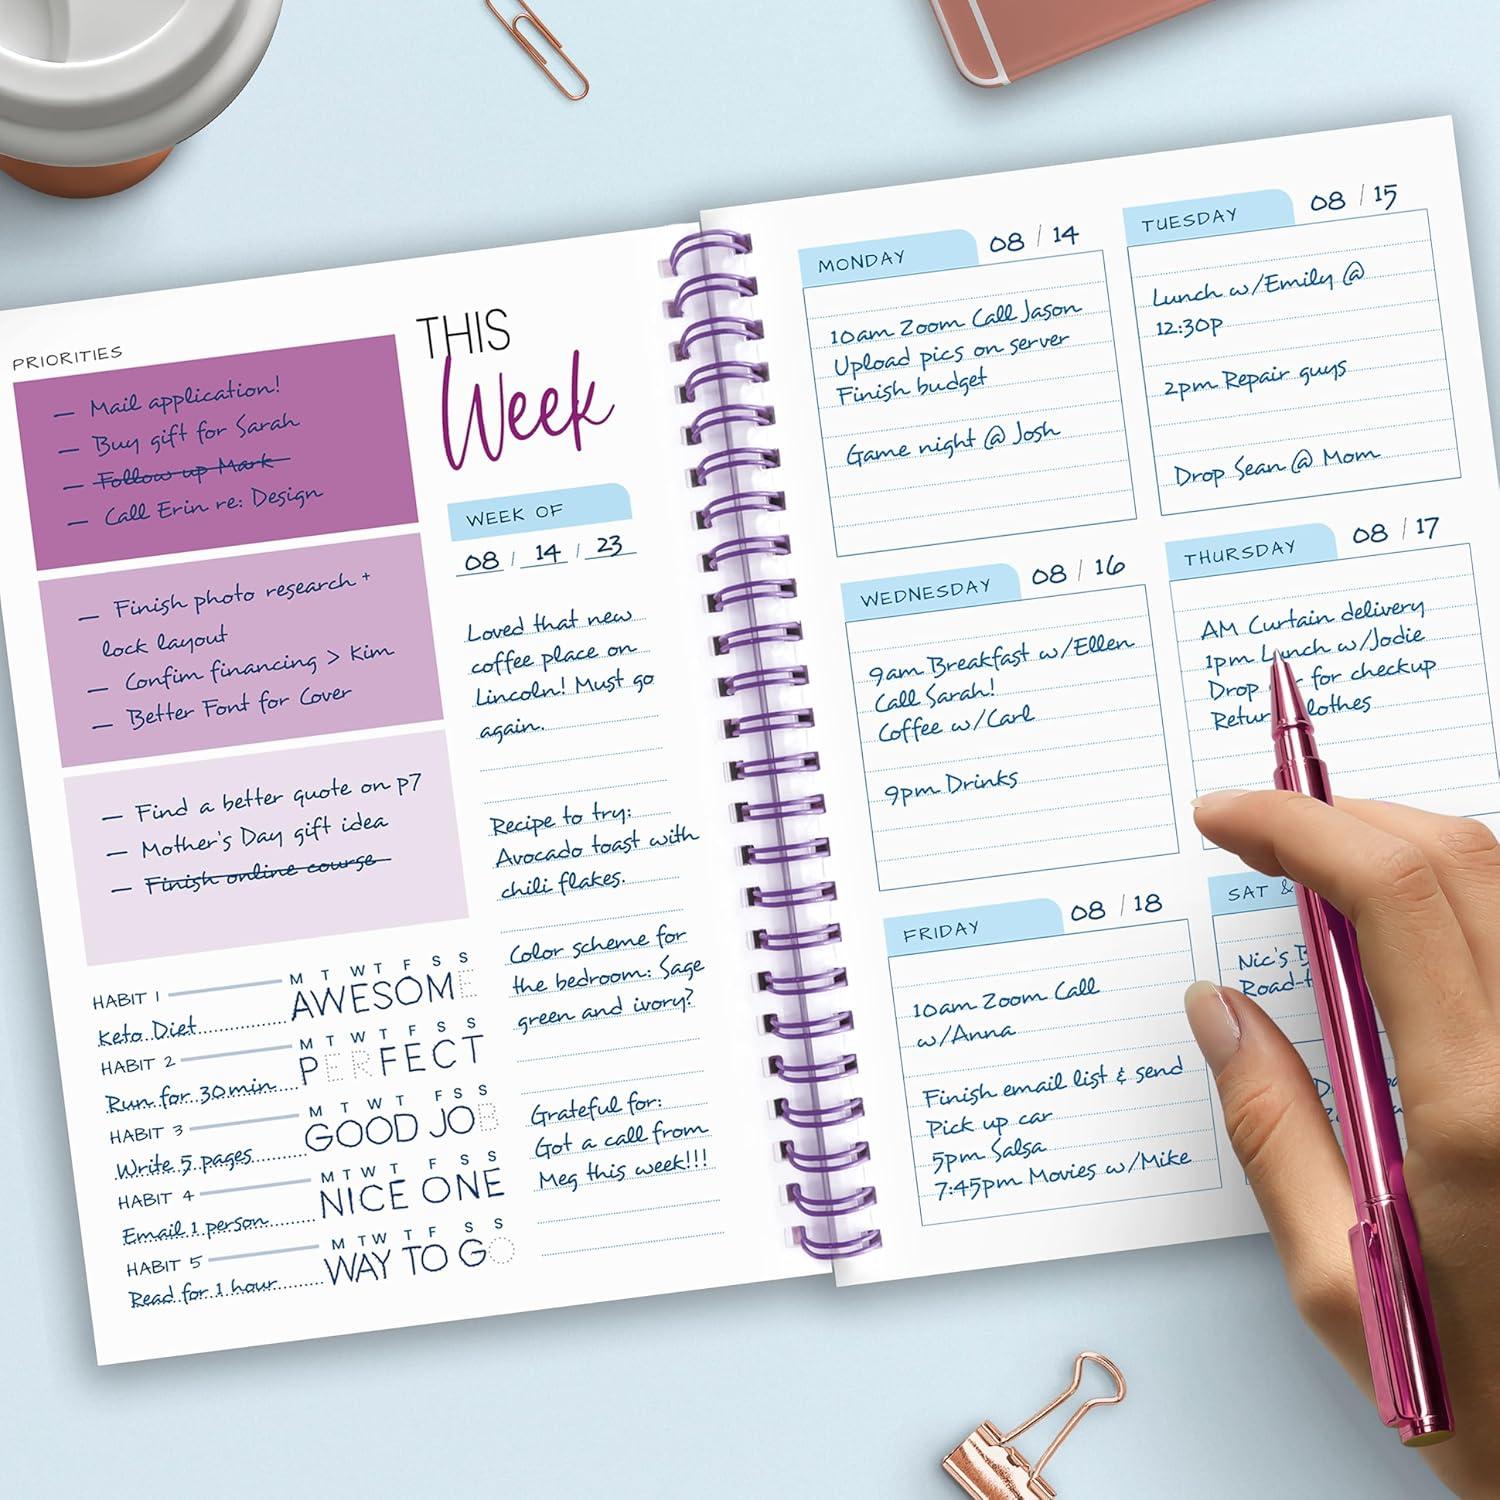 PRIORITIES
— Mail application!
— Buy gift for Sarah
— Follow up Mark
— Call Erin re: Design
— Finish photo research +
lock layout
— Confim financing > Kim
— Better Font for Cover
— Find a better quote on p7
— Mother's Day gift idea
— Finish online course
HABIT 1
M T W T F S S
Keto Diet
AWESOME
HABIT 2
M T W T F S S
Run for 30min
PERFECT
HABIT 3
M T W T F S S
Write 5 pages
GOOD JOB
HABIT 4
M T W T F S S
Email 1 person
NICE ONE
HABIT 5
M T W T F S S
Read for 1 hour
WAY TO GO
THIS
Week
WEEK OF
08 / 14 / 23
Loved that new
coffee place on
Lincoln! Must go
again.
Recipe to try:
Avocado toast with
chili flakes.
Color scheme for
the bedroom: Sage
green and ivory?
Grateful for:
Got a call from
Meg this week!!!
MONDAY 08 / 14
10am Zoom Call Jason
Upload pics on server
Finish budget
Game night @ Josh
TUESDAY 08 / 15
Lunch w/Emily @
12:30p
2pm Repair guys
Drop Sean @ Mom
WEDNESDAY 08 / 16
9am Breakfast w/Ellen
Call Sarah!
Coffee w/Carl
9pm Drinks
THURSDAY 08 / 17
AM Curtain delivery
1pm Lunch w/Jodie
Drop for checkup
FRIDAY 08 / 18
10am Zoom Call
w/Anna
Finish email list & send
Pick up car
5pm Salsa
7:45pm Movies w/Mike
SAT &
Nic's